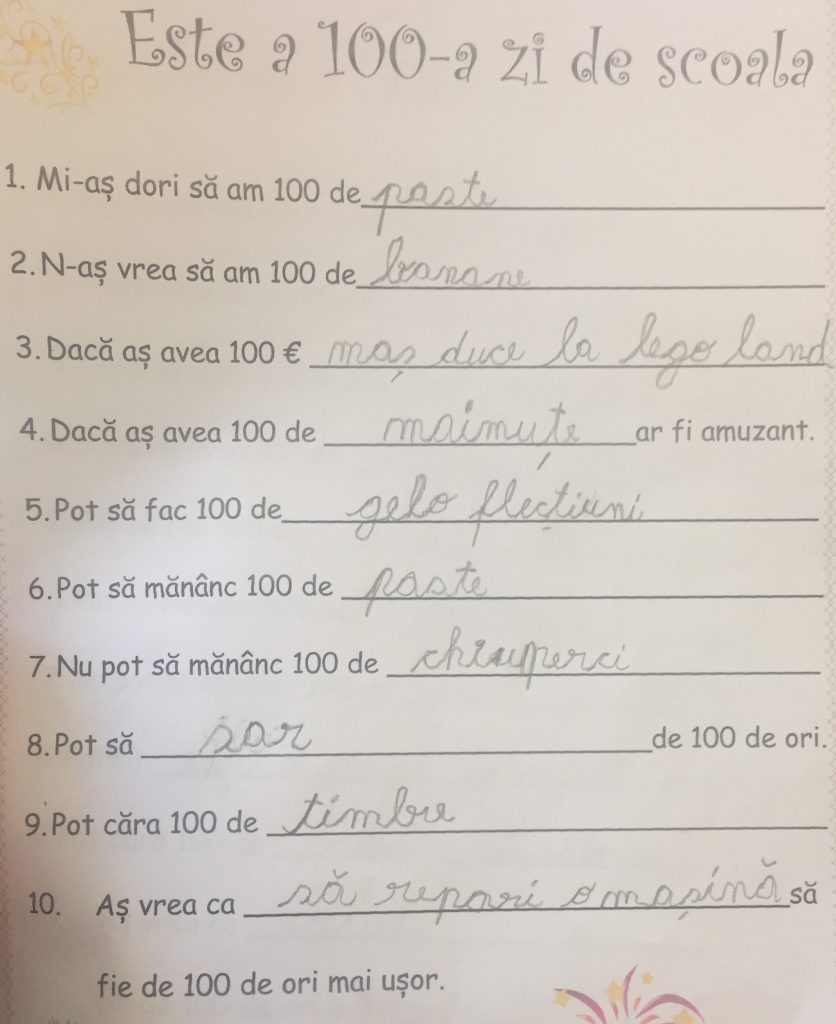 Este a 100-a zi de scoala
1. Mi-aș dori să am 100 de paste
2. N-aș vrea să am 100 de banane
3. Dacă aș avea 100 € maș duce la lego land
4. Dacă aș avea 100 de maimuțe ar fi amuzant.
5. Pot să fac 100 de gelo flecțiuni
6. Pot să mănânc 100 de paste
7. Nu pot să mănânc 100 de chiuperci
8. Pot să sar de 100 de ori.
9. Pot căra 100 de timbre
10. Aș vrea ca să repari o mașină să
fie de 100 de ori mai ușor.